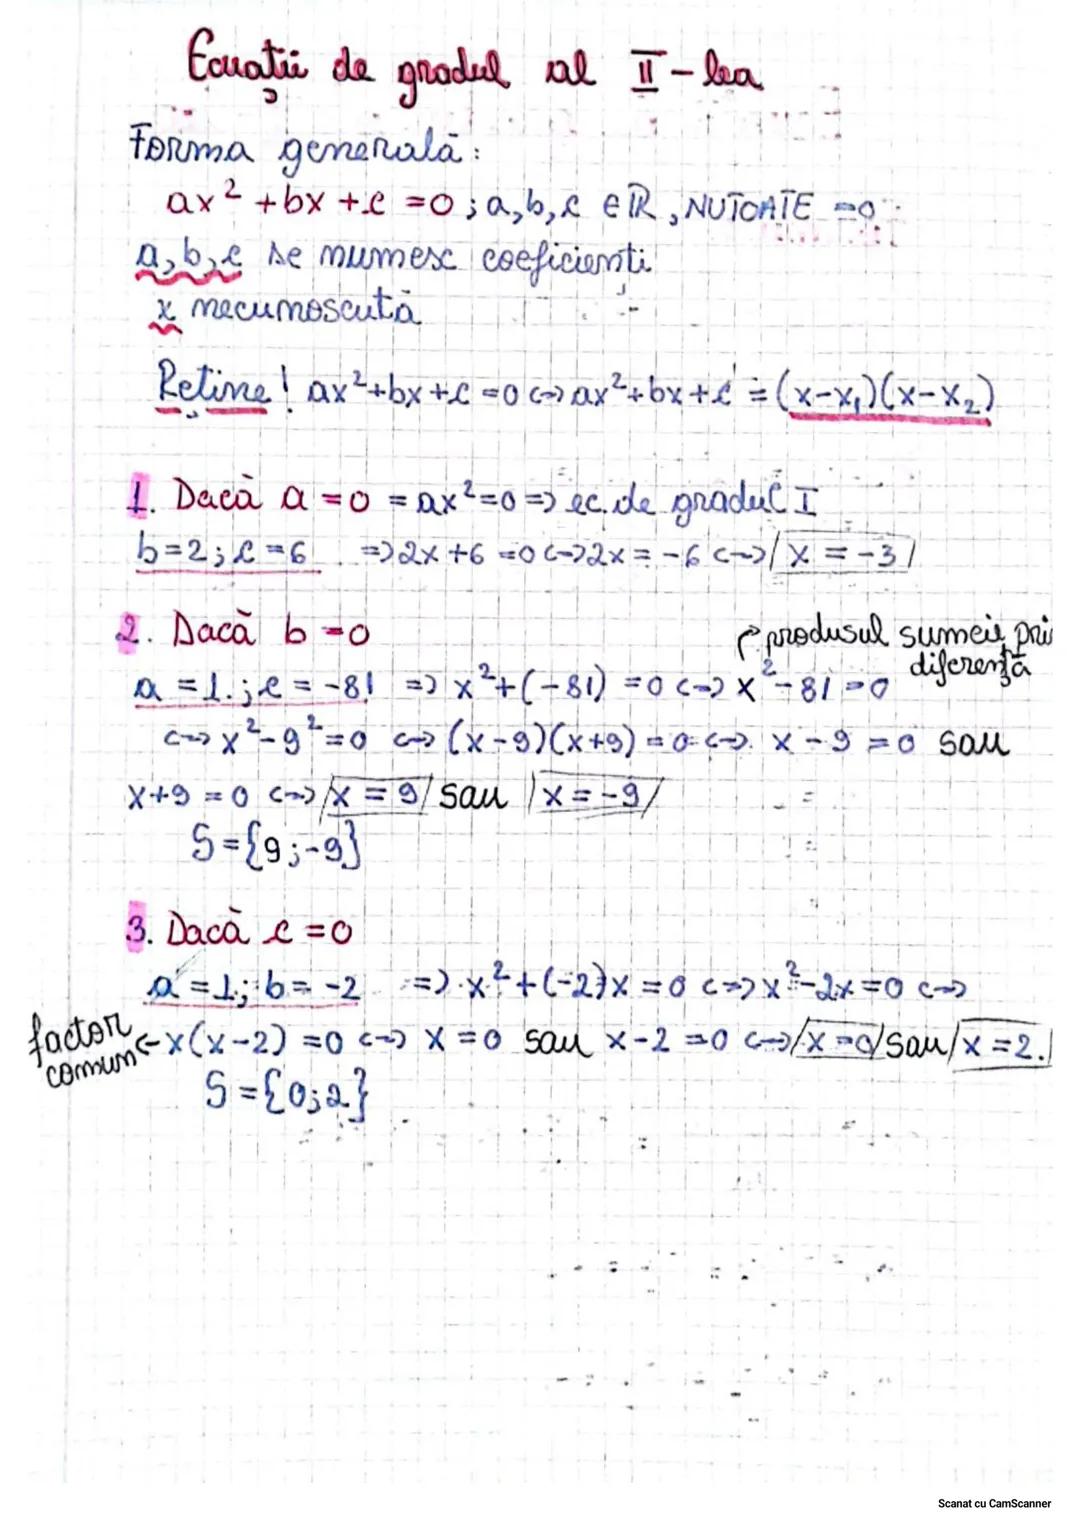 Ecuații de gradul al II-lea
Forma generală:
ax² + bx + c = 0 ; a, b, c ∈ ℝ, NU TOATE = 0
a, b, c se numesc coeficienti
x necunoscută
Retine! ax²+bx+c =0 <=> ax²+bx+c = (x-x₁)(x-x₂)
1. Dacă a = 0 = ax²=0 => ec. de gradul I
b=2; c=6 => 2x+6 =0 <=> 2x = -6 <=> x = -3
2. Dacă b = 0
produsul sumei pri
diferență
a = 1.; c = -81 => x²+(-81) =0 <=> x²-81=0
<=> x²-9²=0 <=> (x-9)(x+9) = 0 <=> x-9 =0 sau
x+9 = 0 <=> x = 9 sau x = -9
S={9;-9}
3. Dacă c = 0
a = 1; b = -2 => x²+(-2)x = 0 <=> x²-2x=0 <=>
factor comun ← x(x-2) =0 <=> x =0 sau x-2 =0 <=> x=0 sau x =2.
S={0;2}
Scanat cu CamScanner